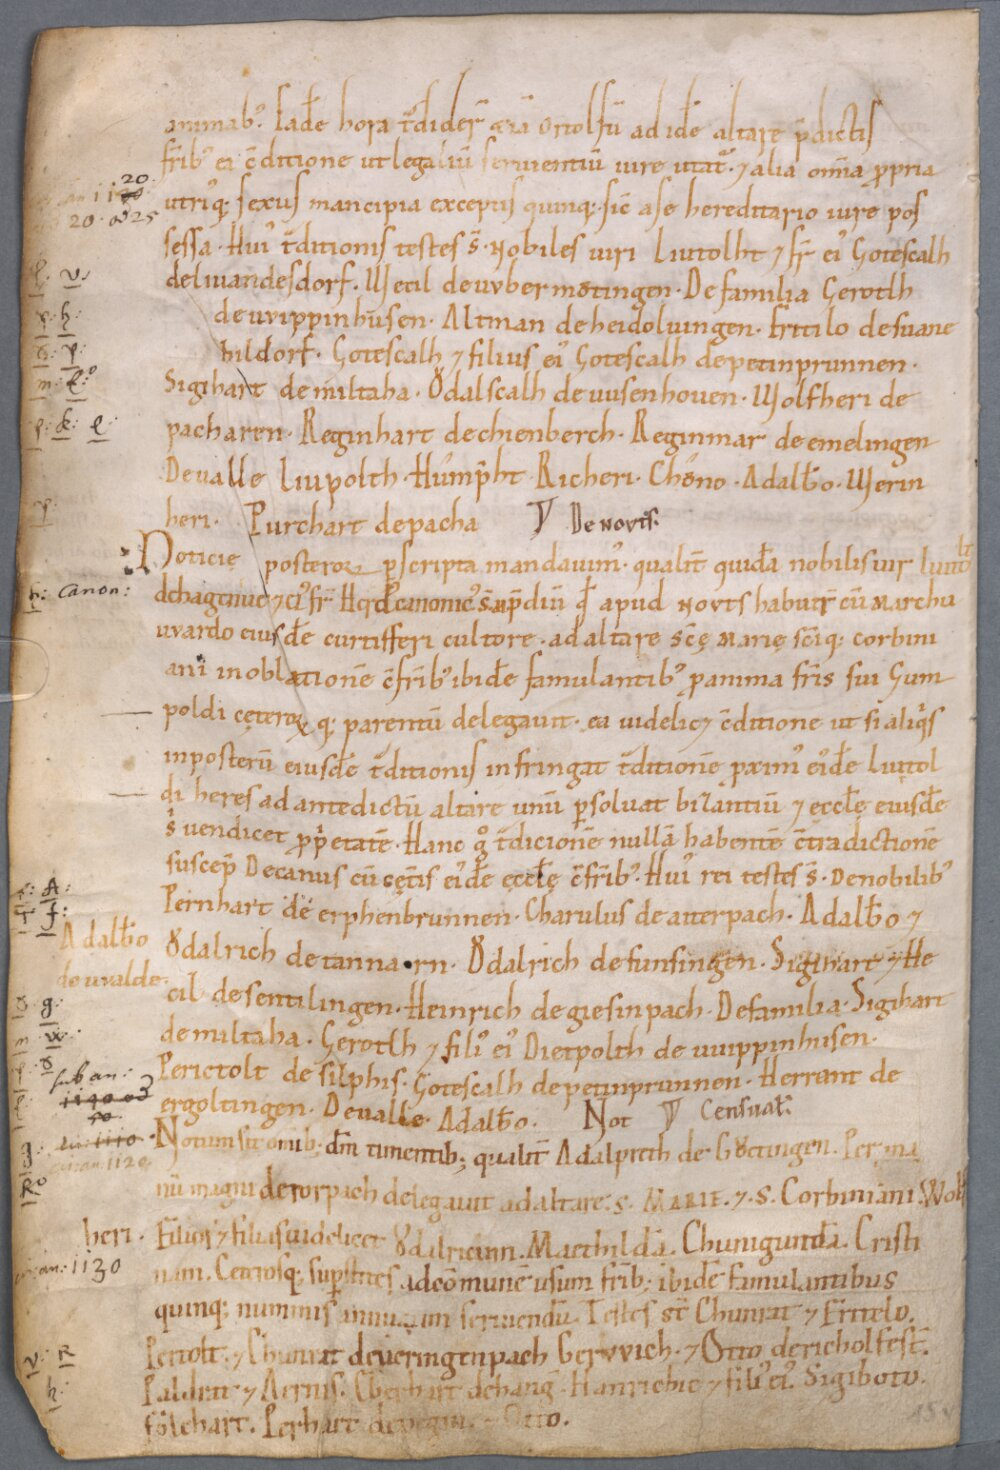 animab᷒. Eadē hora t͂dider̄ &iā Ortolfū ad idē altare p̄dictis
frīb᷒ ea c̄ditione ut legaliū seruientiū iure utat᷒. ⁊ alia om̄ia p̱pria
utriq; sexus mancipia exceptis quinq; sic̄ a se hereditario iure pos
sessa. Hui᷒ t͂ditionis testes s̄. Nobiles uiri Liutolht ⁊ fr̄ ei᷒ Gotescalh
de liuandesdorf. Wecil de uvbermotingen. De familia Gerolth
de uvippinhusen. Altman de heidoluingen. Ertilo de suane
hildorf. Gotescalh ⁊ filius ei᷒ Gotescalh de petinprunnen.
Sigihart de miltaha. Odalscalh de uusenhouen. Wolfheri de
pacharen. Reginhart de chienberch. Reginmar de emelingen
De ualle Liupolth. Hūmp̄ht. Richeri. Chůno. Adalb̄o. Werin
heri. Purchart de pacha De Nouis.
Noticię posteroꝝ p̱scripta mandauim᷒. qualit̄ quidā nobilis uir Liuto
lt
⁊ ei᷒ fr̄ canonic᷒ p̄diū q̄d apud Nouis habuer̄ cū Marchu
uvardo eiusdē curtifferi cultore. ad altare scę Marię scīq; corbini
ani in oblationē c̄frīb᷒ ibidē famulantib᷒ p̱ anima frīs sui Gum
poldi cęteroꝝ q; parentū delegauit. ea uidelic& c̄ditione ut si aliq͛s
in posterū eiusdē t͂ditionis infringat t͂ditionē p̱xim᷒ eidē Liutol
di heres ad antedictū altare unū p̱soluat bizantiū ⁊ ęccłę eiusdē
s᷒ uendicet p̱p͛etatē. Hanc g͛ t͂dicionē nullā habentē c̄tradictionē
suscep̄ Decanus cū cęt̄is ei᷒dē ęccłę c̄frīb᷒. Hui᷒ rei testes s̄. De nobilib᷒
Pernhart de erphenbrunnen. Charulus de aiterpach. Adalb̄o ⁊
Odalrich de tanna rn. Odalrich de funsingen. Sigihart ⁊ He
cil de sentilingen. Heinrich de giesinpach. De familia. Sigihart
de miltaha. Gerolth ⁊ fili᷒ ei᷒ Dietpolth de uuippinhusen.
Perictolt de silphis. Gotescalh de petinprunnen. Herrant de
ergoltingen. De ualle. Adalb̄o. Not Censual̄.
Notum sit omīb; dm̄ timentib; qualit̄ Adalpreth de Gottingen. Per ma
nū magni de rorpach delegauit ad altare. S. MARIE. ⁊. S. Corbiniani. Wolf
heri. Filios ⁊ filias uidelicet Odalricum. Mathildā. Chunigundā. Cristi
nam. Ceterosq; sup̱stites ad cōmunē usum frīb; ibidē famulantibus
quinq; nummis annuatim seruiendū. Testes st̄ Chunrat ⁊ Ernelo.
Pertolt. ⁊ Chunrat de ueringenpach Gervvich. ⁊ Otto de richolfest̄.
Paldrat ⁊ Aernis. Eberhart de hang̅. Hanrichic ⁊ fili᷒ ei᷒. Sigiboto.
Folchart. Perhart ⁊ Otto.
20
20. ad 25
canon:
Adalb̄o
de uvalde
sub an:
1140 ad
50
cir. 1110
cir. an. 1120
cir. an: 1130